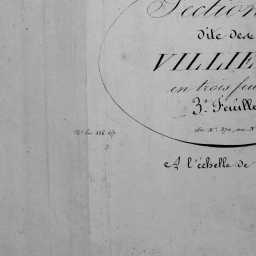 Section
dite des
VILLIE
en trois feu
3.e Feuille
du N.° 370, au N.°
A l'échelle de